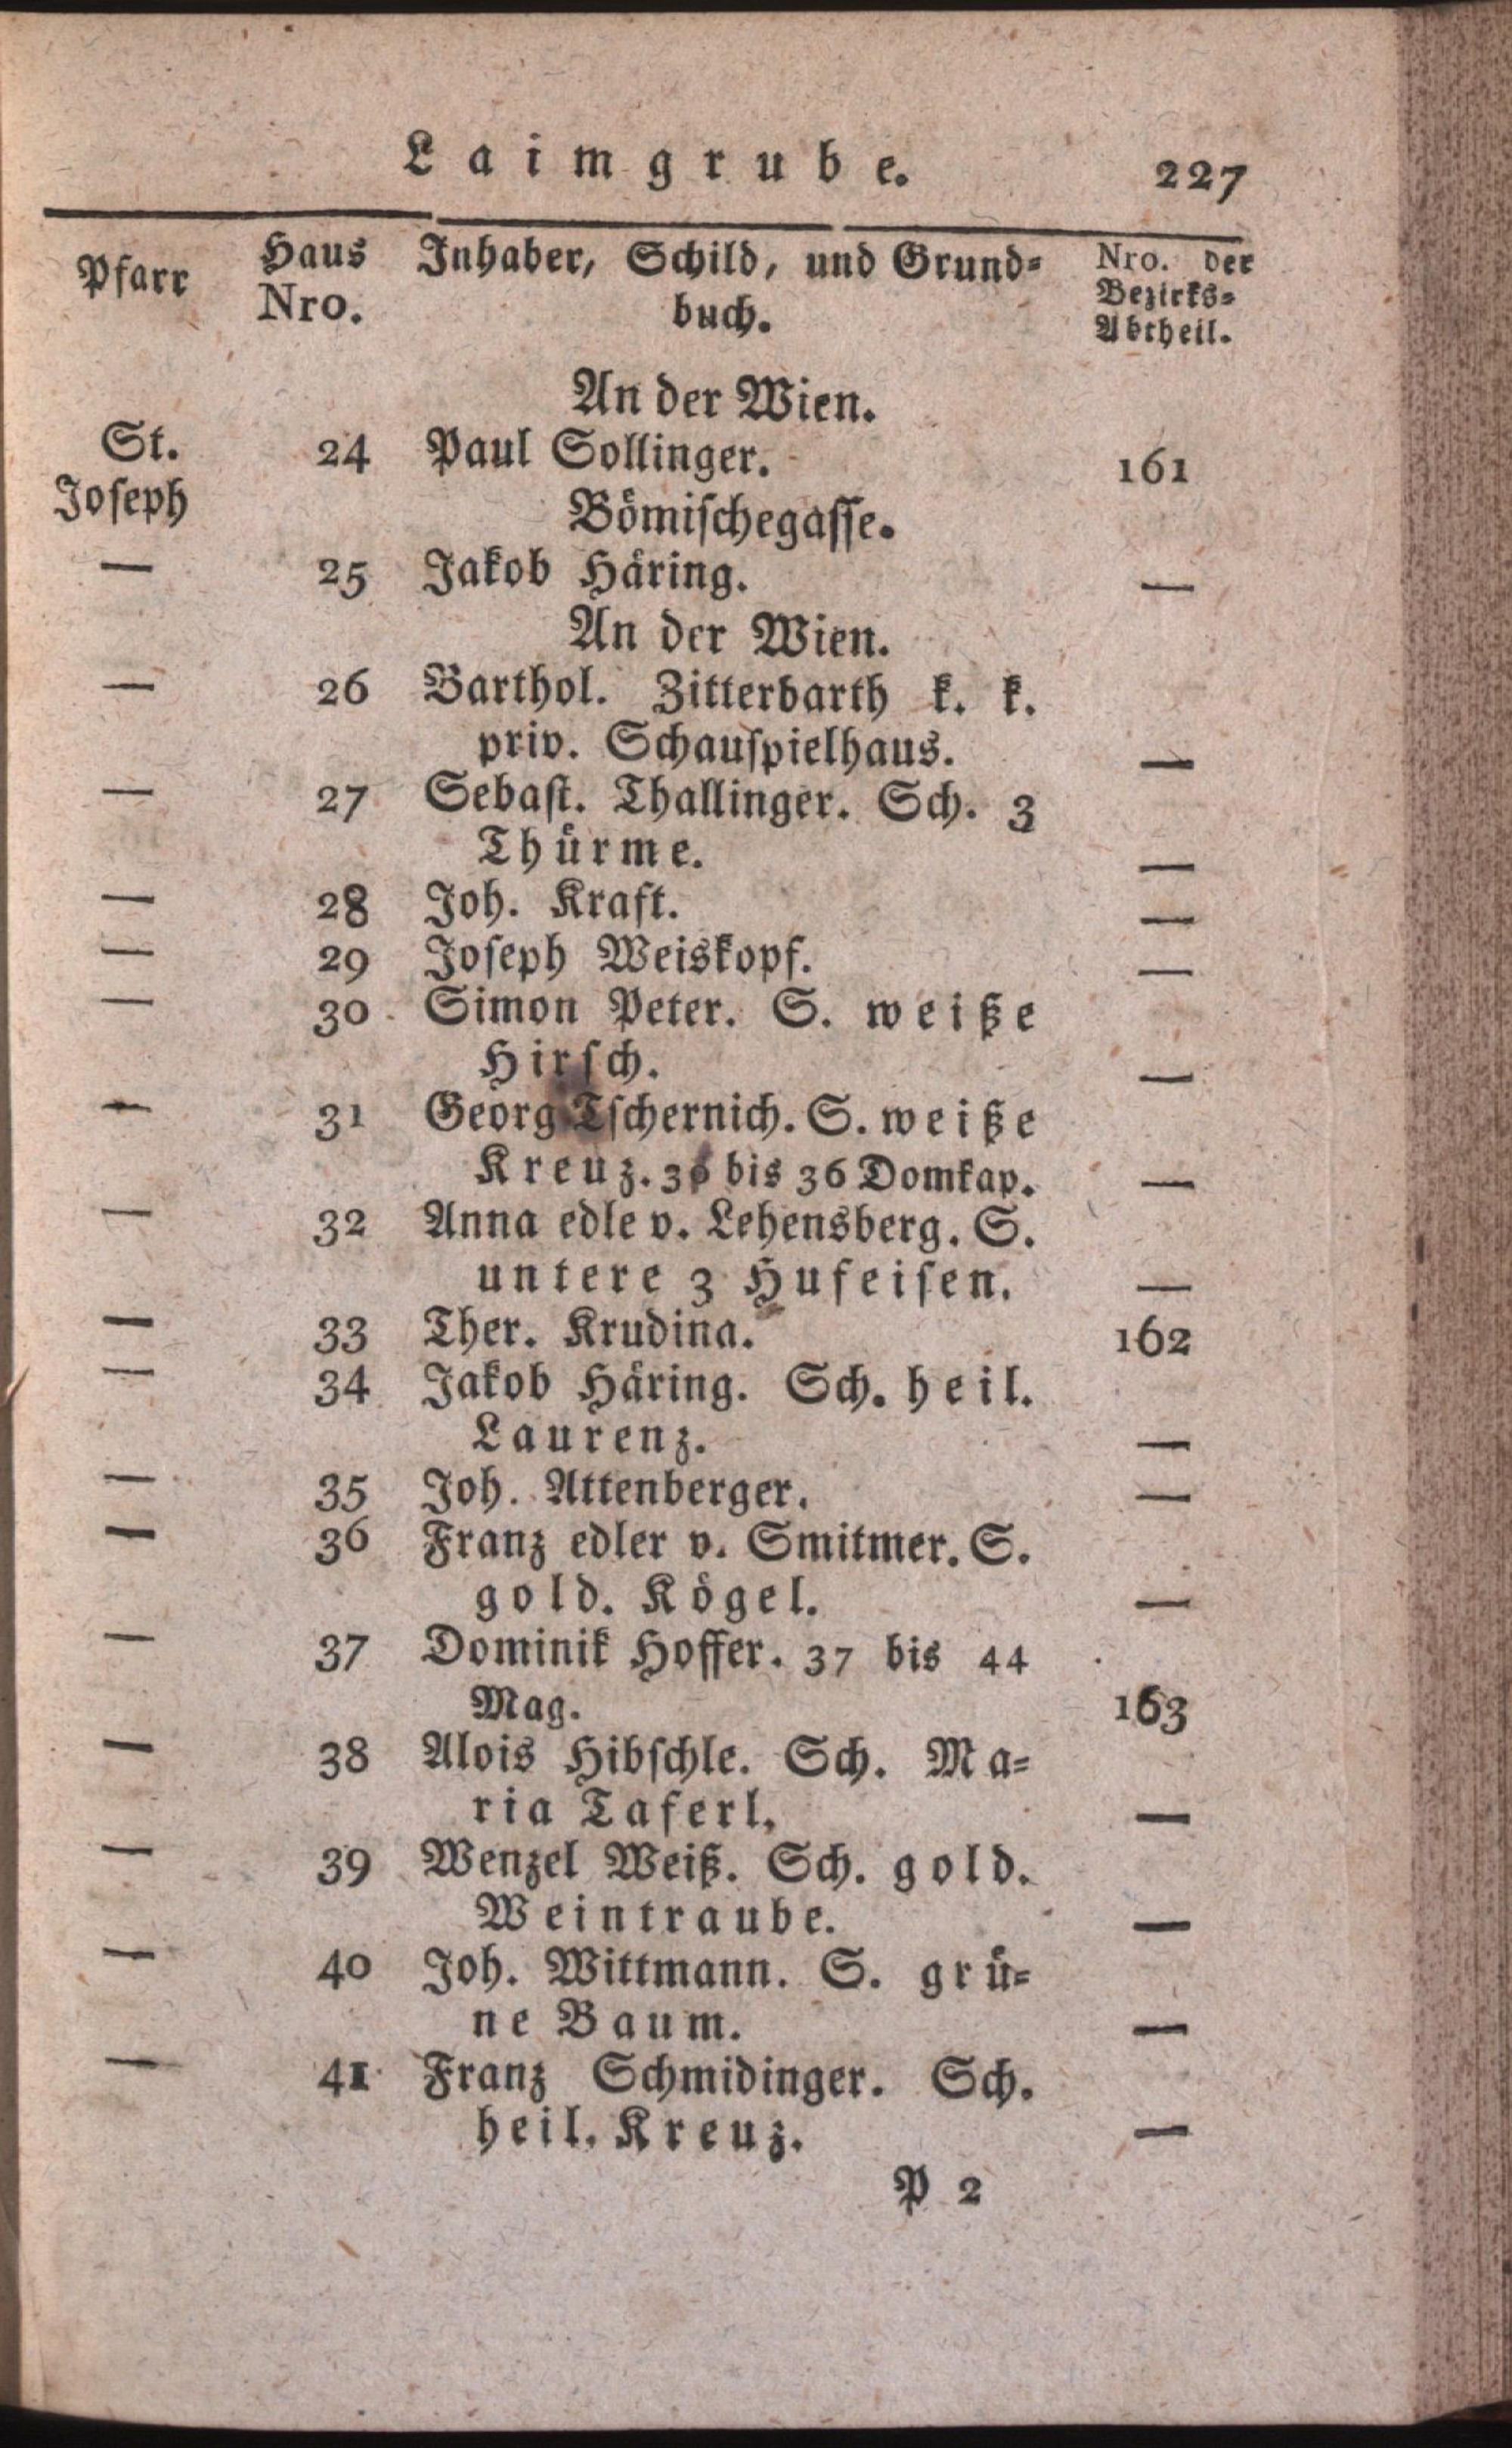 Laimgrube. 227
Pfarr Haus Nro. Inhaber, Schild, und Grund= Nro. der
buch. Bezirks=
Abtheil.
An der Wien.
St. 24 Paul Sollinger. 161
Joseph Bömischegasse.
— 25 Jakob Häring. —
An der Wien.
— 26 Barthol. Zitterbarth k. k.
priv. Schauspielhaus. —
— 27 Sebast. Thallinger. Sch. 3
Thürme. —
— 28 Joh. Kraft. —
— 29 Joseph Weiskopf. —
— 30 Simon Peter. S. weiße
Hirsch. —
— 31 Georg Tschernich. S. weiße
Kreuz. bis 36 Domkap. —
— 32 Anna edle v. Lehensberg. S.
untere 3 Hufeisen. —
— 33 Ther. Krudina. 162
— 34 Jakob Häring. Sch. heil.
Laurenz. —
— 35 Joh. Attenberger. —
— 36 Franz edler v. Smitmer. S.
gold. Kögel. —
— 37 Dominik Hoffer. 37 bis 44
Mag. 163
— 38 Alois Hibschle. Sch. Ma=
ria Taferl. —
— 39 Wenzel Weiß. Sch. gold.
Weintraube. —
— 40 Joh. Wittmann. S. grü=
ne Baum. —
— 41 Franz Schmidinger. Sch.
heil. Kreuz. —
P 2